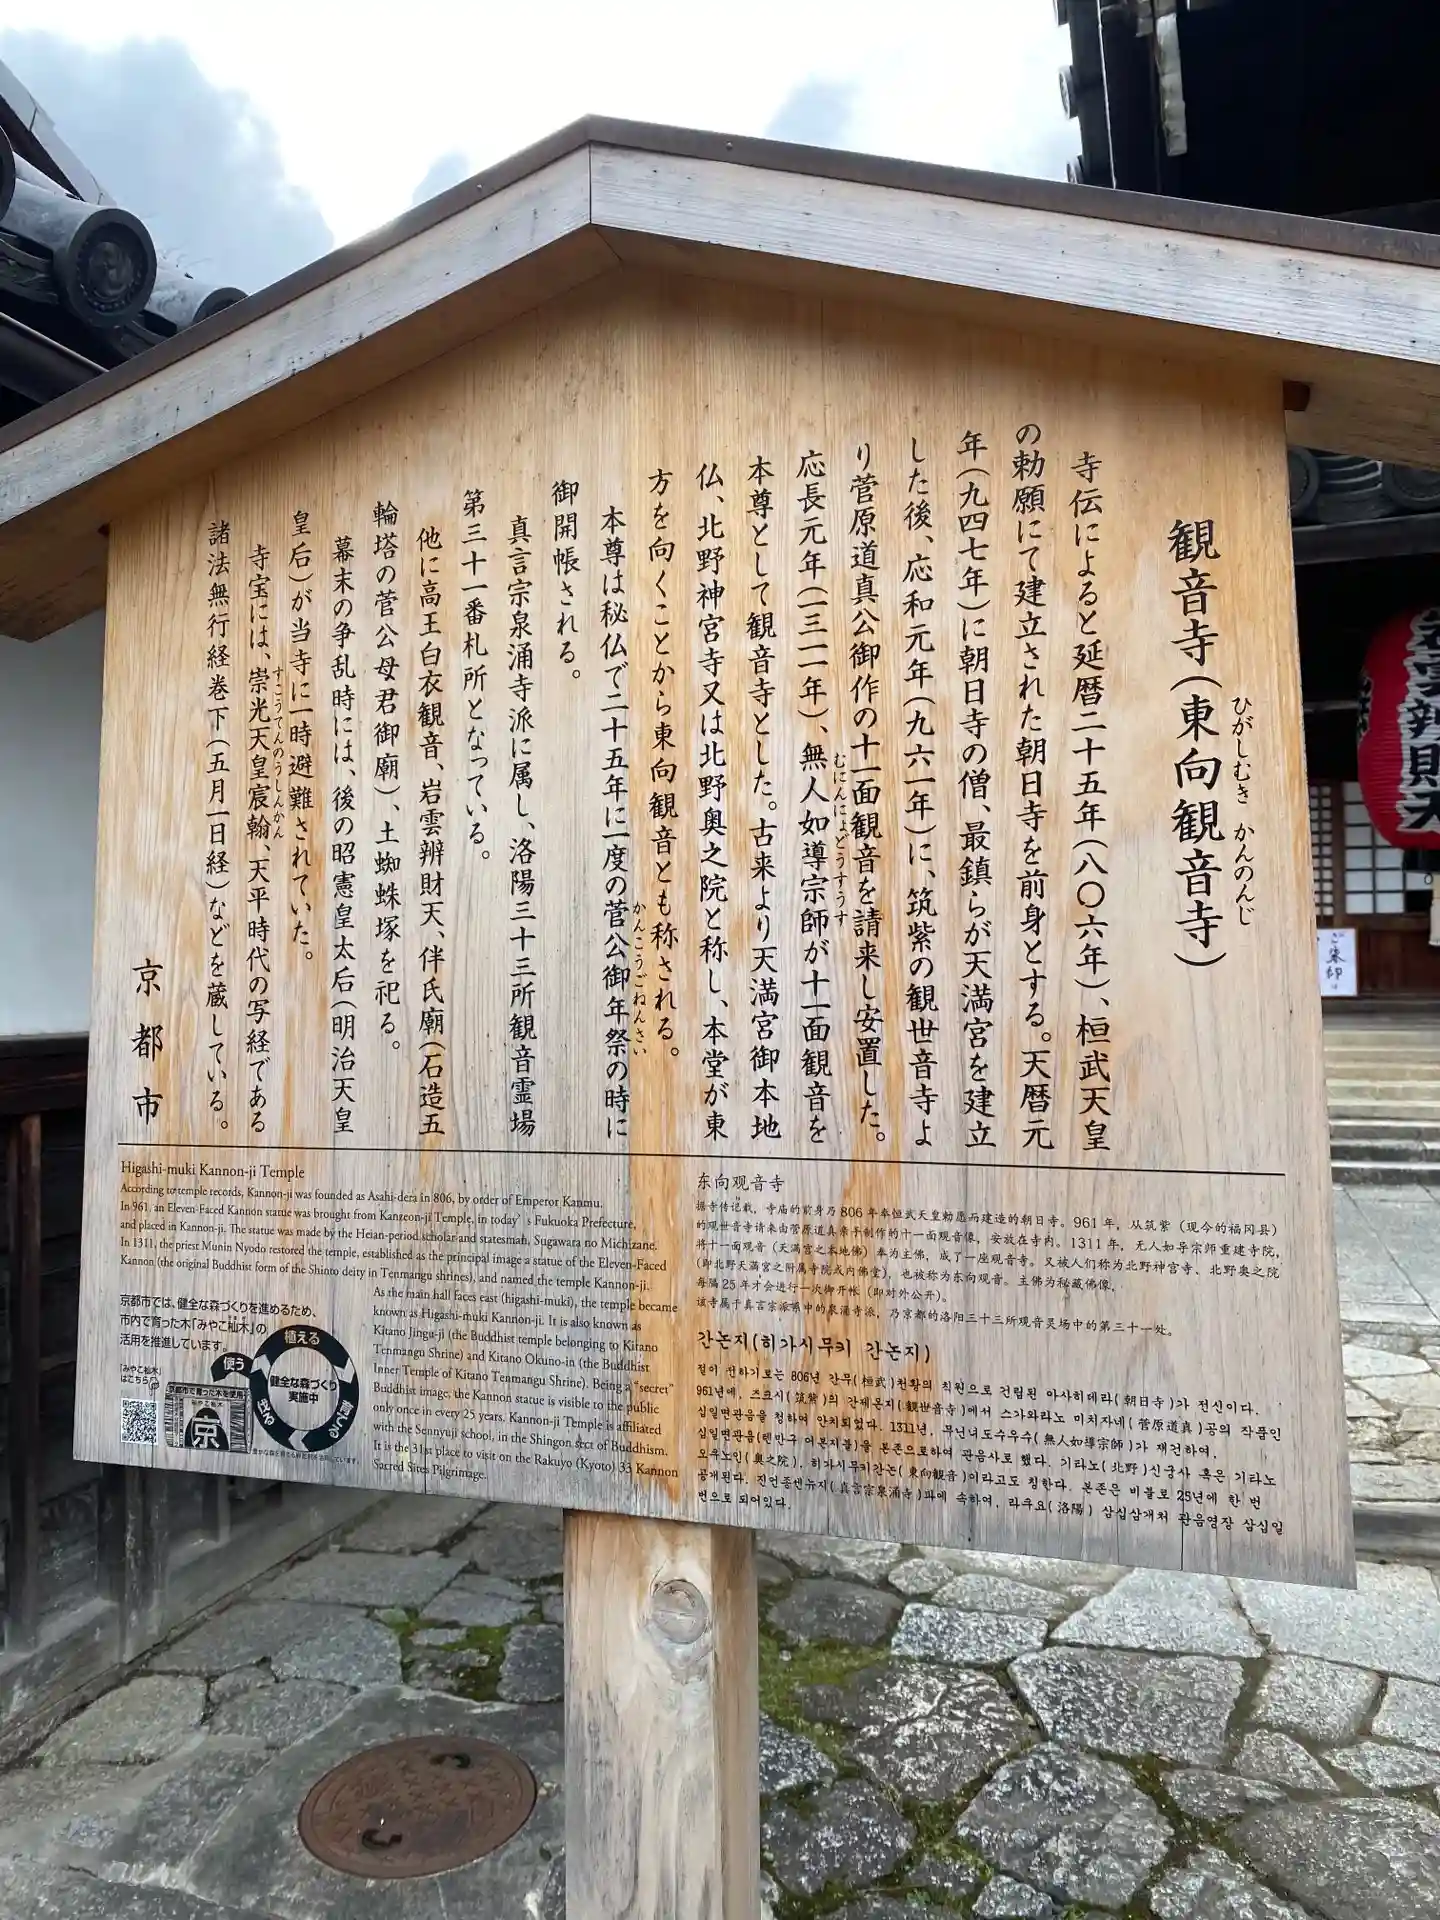 観音寺(東向観音寺)
ひがしむき かんのんじ
寺伝によると延暦二十五年(八〇六年)、桓武天皇
の勅願にて建立された朝日寺を前身とする。天暦元
年(九四七年)に朝日寺の僧、最鎮らが天満宮を建立
した後、応和元年(九六一年)に、筑紫の観世音寺よ
り菅原道真公御作の十一面観音を請来し安置した。
応長元年(一三一一年)、無人如導宗師が十一面観音を
むにんにょどうすうす
本尊として観音寺とした。古来より天満宮御本地
仏、北野神宮寺又は北野奥之院と称し、本堂が東
方を向くことから東向観音とも称される。
本尊は秘仏で二十五年に一度の菅公御年祭の時に
かんこうごねんさい
御開帳される。
真言宗泉涌寺派に属し、洛陽三十三所観音霊場
第三十一番札所となっている。
他に高王白衣観音、岩雲辨財天、伴氏廟(石造五
輪塔の菅公母君御廟)、土蜘蛛塚を祀る。
幕末の争乱時には、後の昭憲皇太后(明治天皇
皇后)が当寺に一時避難されていた。
寺宝には、崇光天皇宸翰、天平時代の写経である
すこうてんのうしんかん
諸法無行経巻下(五月一日経)などを蔵している。
京都市
Higashi-muki Kannon-ji Temple
According to temple records, Kannon-ji was founded as Asahi-dera in 806, by order of Emperor Kanmu.
In 961, an Eleven-Faced Kannon statue was brought from Kanzeon-ji Temple, in today's Fukuoka Prefecture,
and placed in Kannon-ji. The statue was made by the Heian-period scholar and statesman, Sugawara no Michizane.
In 1311, the priest Munin Nyodo restored the temple, established as the principal image a statue of the Eleven-Faced
Kannon (the original Buddhist form of the Shinto deity in Tenmangu shrines), and named the temple Kannon-ji.
As the main hall faces east (higashi-muki), the temple became
known as Higashi-muki Kannon-ji. It is also known as
Kitano Jingu-ji (the Buddhist temple belonging to Kitano
Tenmangu Shrine) and Kitano Okuno-in (the Buddhist
Inner Temple of Kitano Tenmangu Shrine). Being a "secret"
Buddhist image, the Kannon statue is visible to the public
only once in every 25 years. Kannon-ji Temple is affiliated
with the Sennyuji school, in the Shingon sect of Buddhism.
It is the 31st place to visit on the Rakuyo (Kyoto) 33 Kannon
Sacred Sites Pilgrimage.
京都市では、健全な森づくりを進めるため、
市内で育った木「みやこ杣木」の
活用を推進しています。
「みやこ杣木」
はこちら
植える
使う
健全な森づくり
実施中
育てる
京都市で育った木を使用
みやこ杣木
京
东向观音寺
据寺传记载，寺庙的前身乃806年奉恒武天皇勅愿而建造的朝日寺。961年，从筑紫（现今的福冈县）
的观世音寺请来由菅原道真亲手制作的十一面观音像，安放在寺内。1311年，无人如导宗师重建寺院，
将十一面观音（天满宫之本地佛）奉为主佛，成了一座观音寺。又被人们称为北野神宫寺、北野奥之院
(即北野天满宫之附属寺院或内佛堂)，也被称为东向观音。主佛为秘藏佛像，
每隔25年才会进行一次御开帐（即对外公开）。
该寺属于真言宗派系中的泉涌寺派，乃京都的洛阳三十三所观音灵场中的第三十一处。
간논지(히가시무키 간논지)
절이 전하기로는 806년 간무(桓武)천황의 칙원으로 건립된 아사히데라(朝日寺)가 전신이다.
961년에, 즈크시(筑紫)의 간제온지(観世音寺)에서 스가와라노 미치자네(菅原道真)공의 작품인
십일면관음을 청하여 안치되었다. 1311년, 무닌뇨도수우수(無人如導宗師)가 재건하여,
십일면관음(텐만구 어본지불)을 본존으로하여 관음사로 했다. 기타노(北野)신궁사 혹은 기타노
오우노인(奥之院), 히가시무키간논(東向観音)이라고도 칭한다. 본존은 비불로 25년에 한 번
공개된다. 진언종센뉴지(真言宗泉涌寺)파에 속하여, 라우요(洛陽) 삼십삼개처 관음영장 삼십일
번으로 되어있다.
岩雲辨財天
ご朱印は